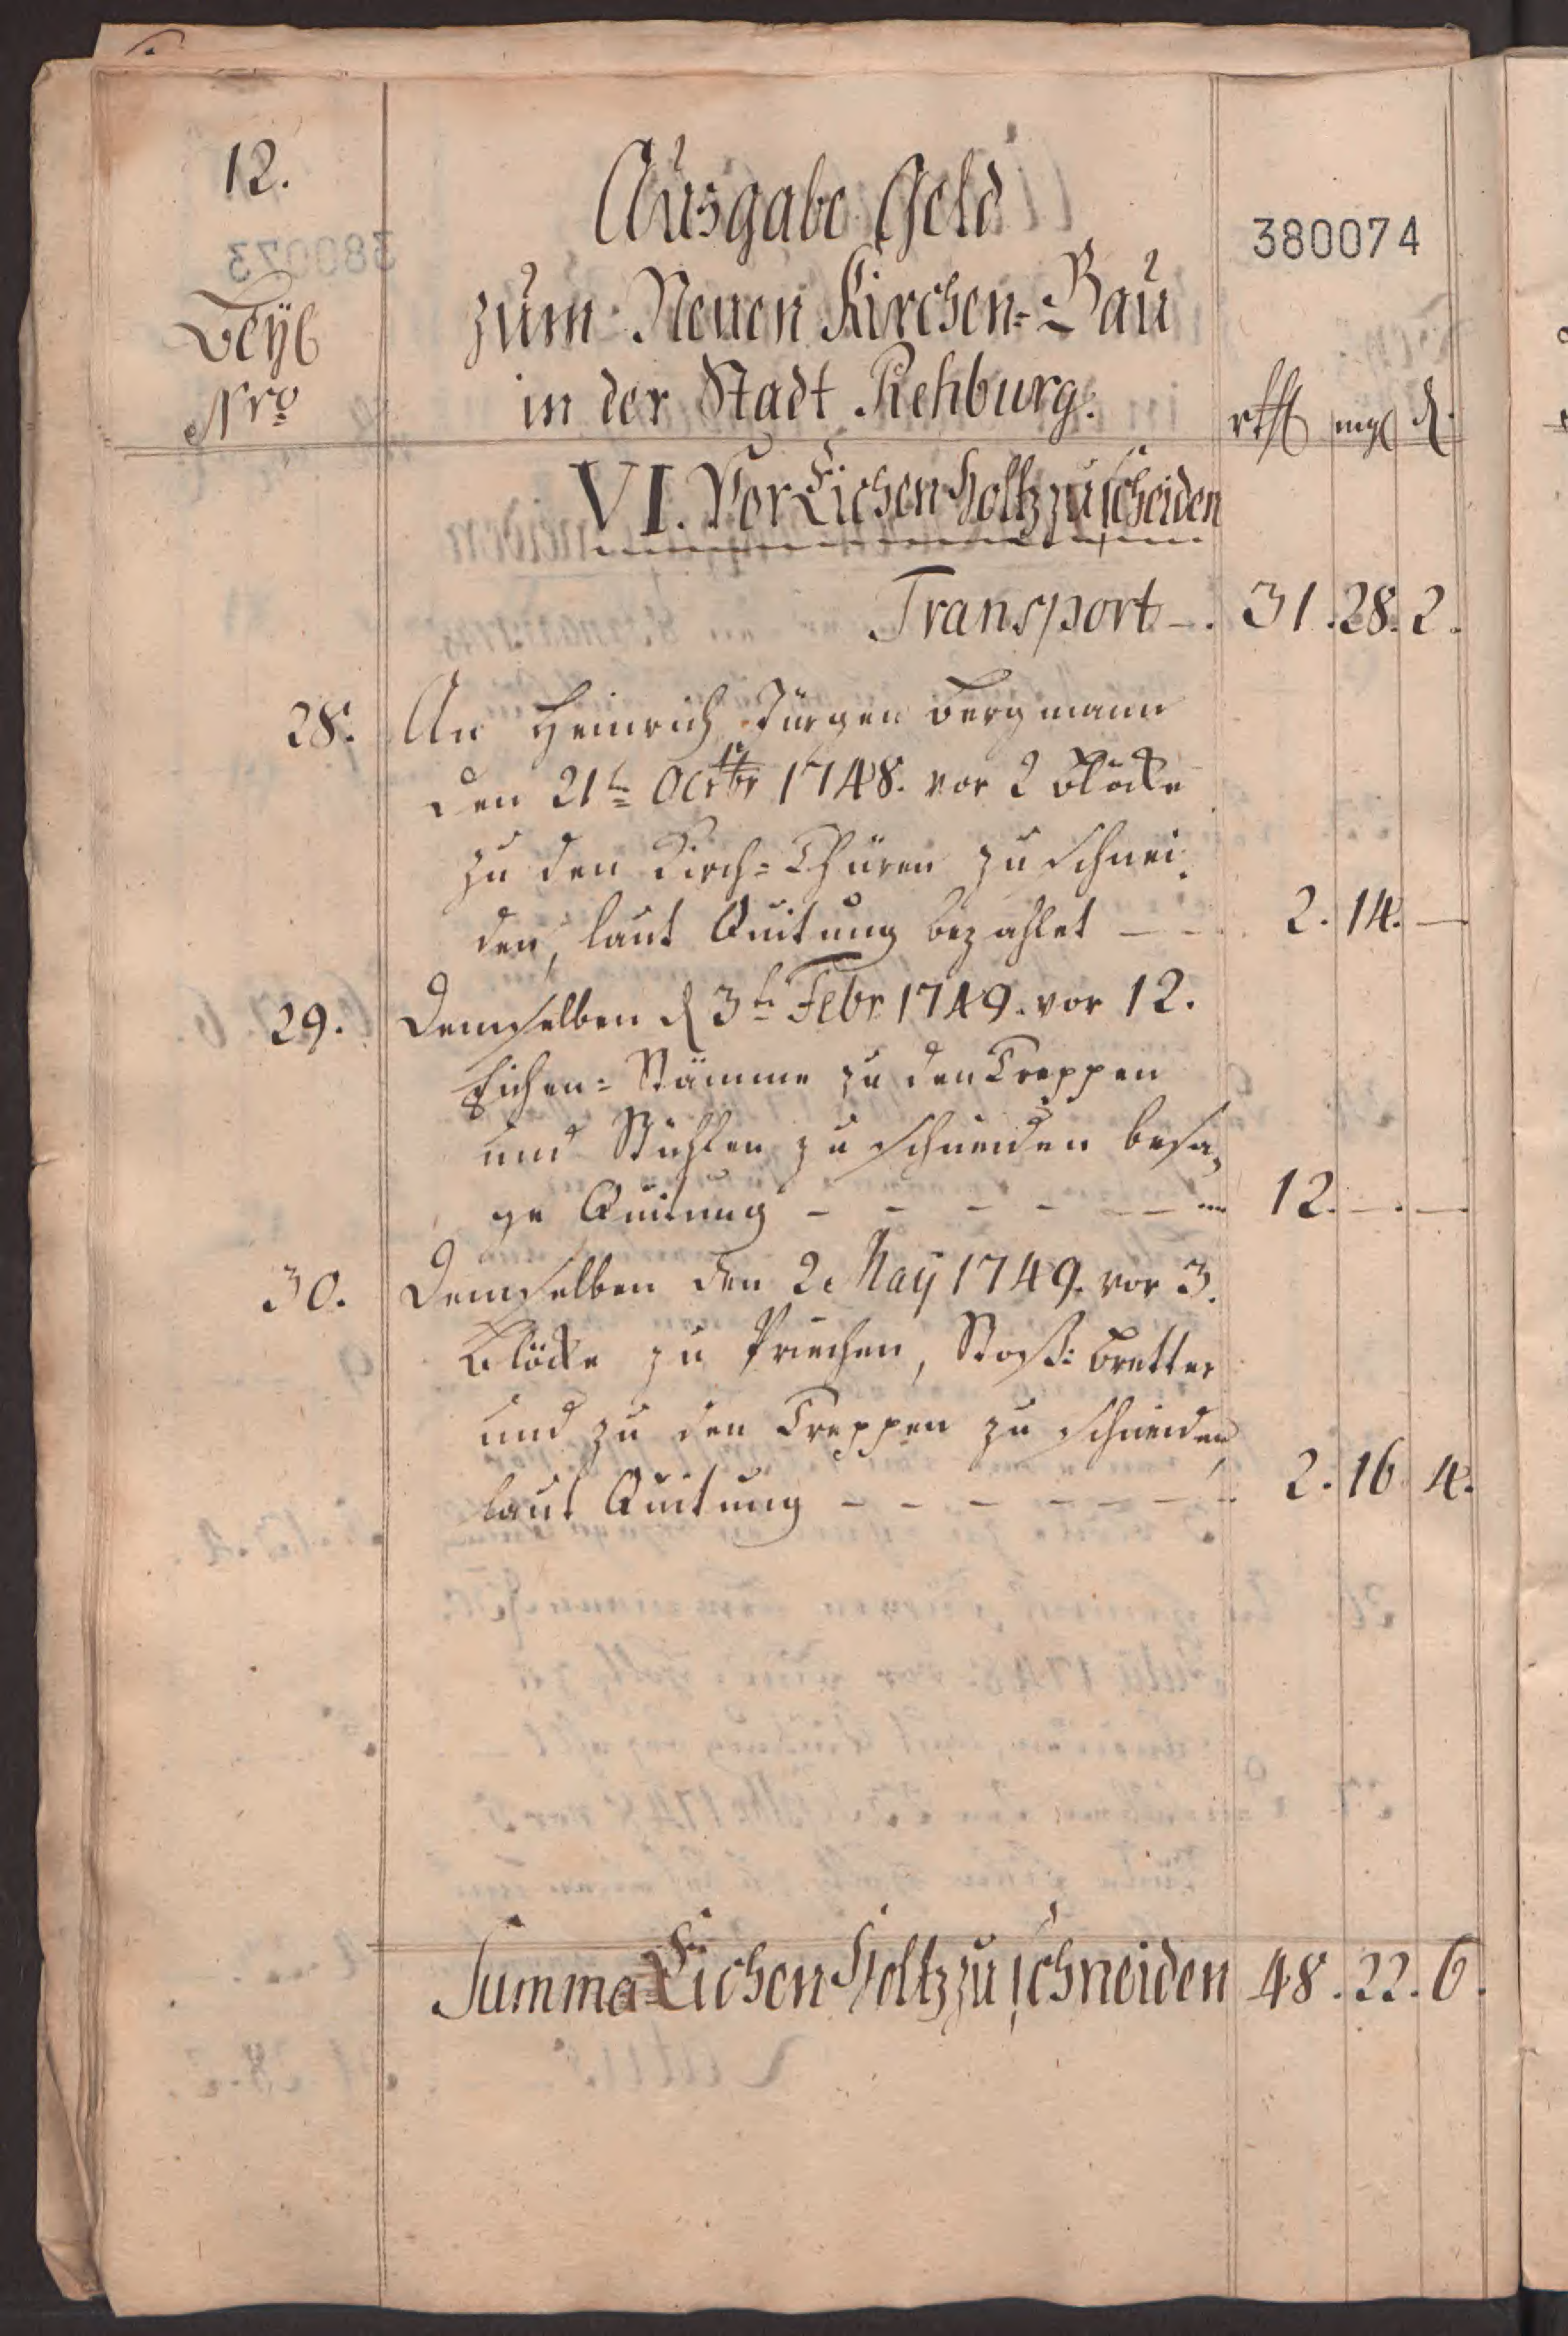 12.
380074
Ausgabe Geld
zum Neuen Kirchen=Bau
in der Stadt Rehburg.
Beyl
Nro
rthl mgl d.
VI. Vor Eichen Holtz zu scheiden
Transport –. 31. 28. 2.
28. An Heinrich Jürgen Bergmann
den 21t Octbr 1748. vor 2 Blöcke
zu den Kirch=Thüren zu schnei=
den, laut Quitung bezahlet – – 2. 14. –
29. Demselben d 3t Febr 1749. vor 12.
Eichen=Stämme zu den Treppen
und Stühlen zu schneiden besa=
ge Quitung – – – – – – 12. –. –
30. Demselben den 2t May 1749. vor 3.
Blöcke zu Priechen, Stoß=Bretter
und zu den Treppen zu schneiden
laut Quitung – – – – – – 2. 16. 4.
Summa Eichen Holtz zu schneiden 48. 22. 6.